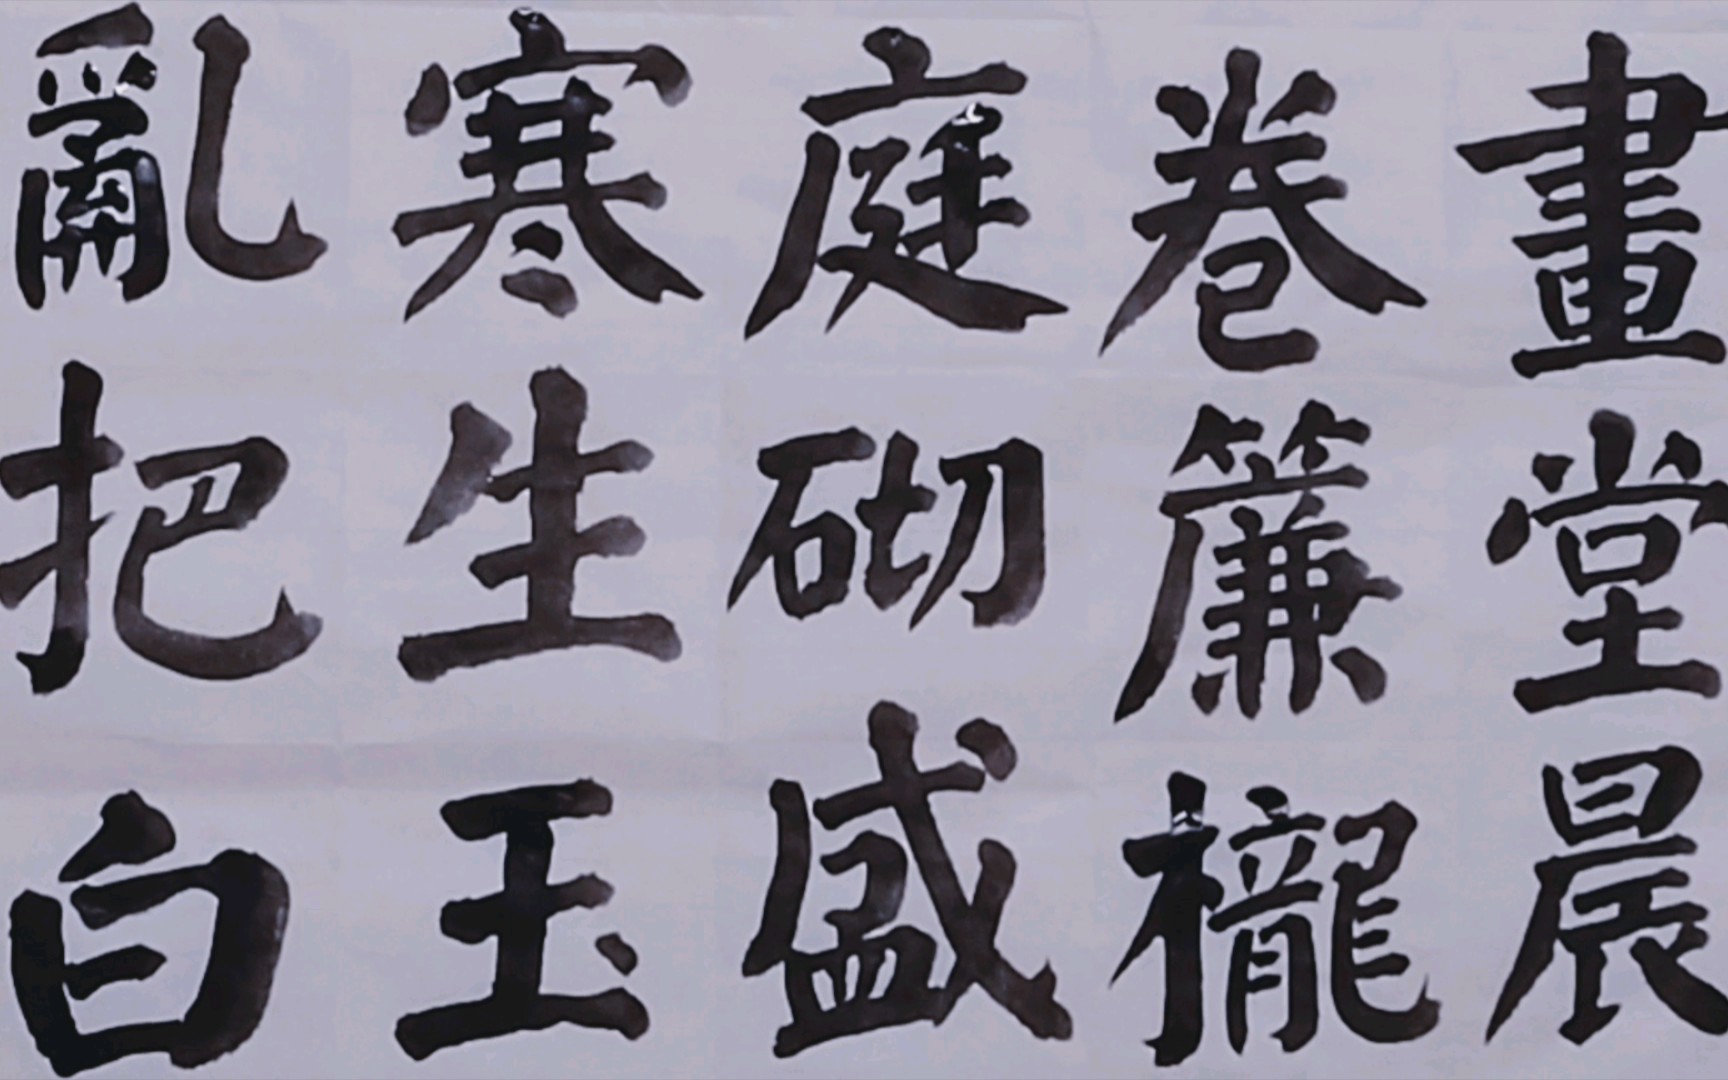 畫堂晨
卷簾櫳
庭砌盛
寒生玉
亂把白